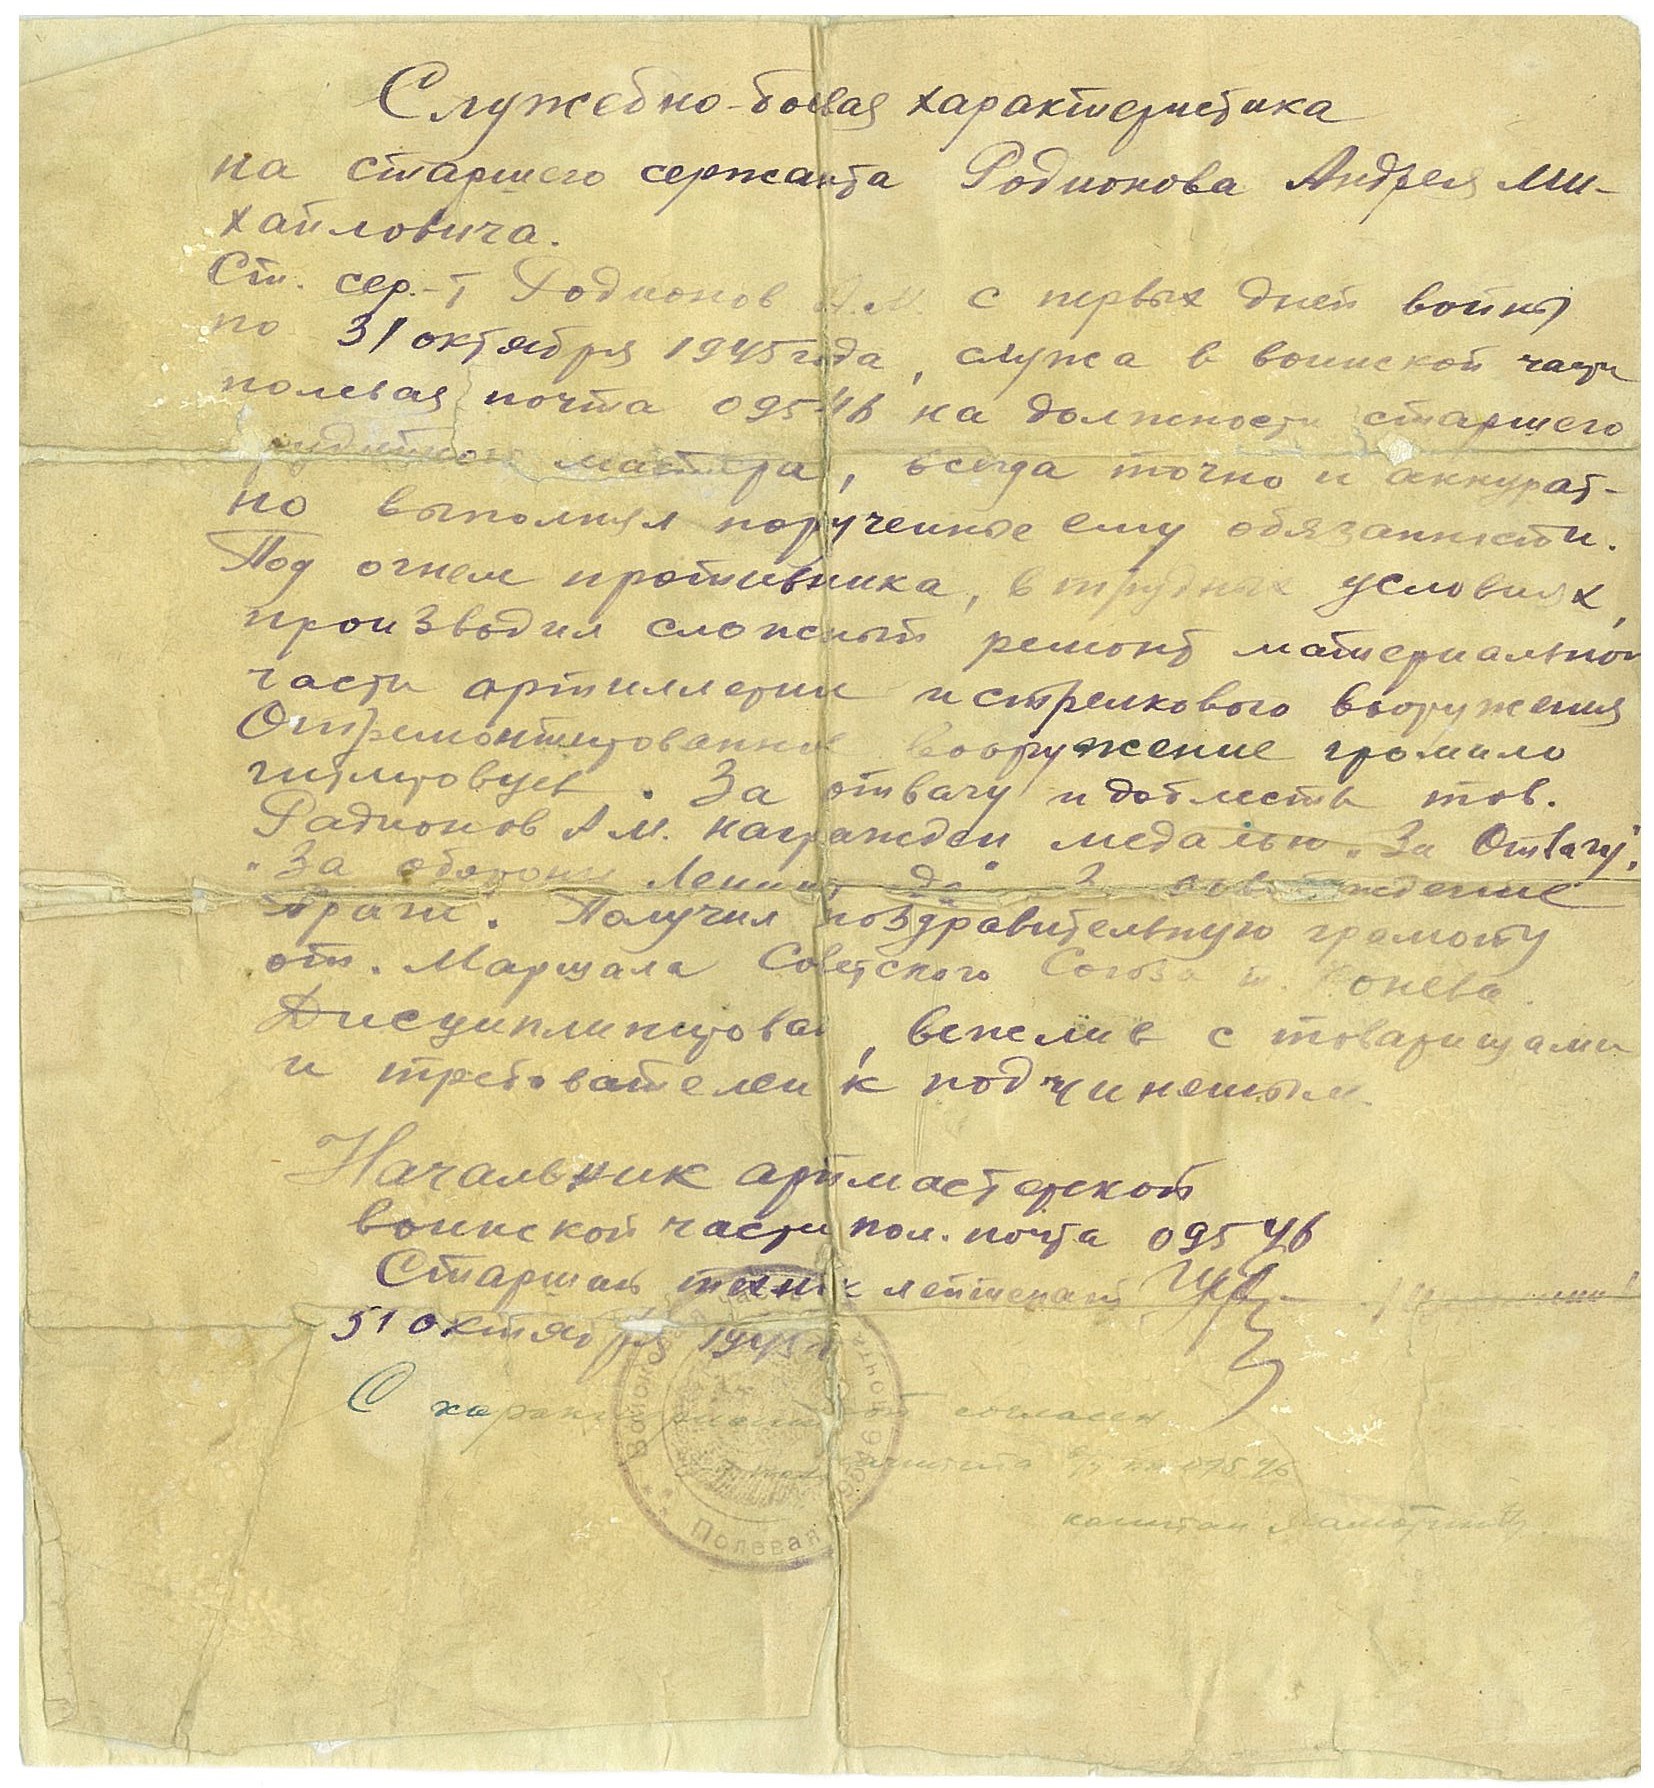 Служебно-боевая характеристика
на старшего сержанта Родионова Андрея Ми-
хайловича.
Ст. сер.-т Родионов А.М. с первых дней войны
по 31 октября 1945 года, служа в воинской части
полевая почта 09546 на должности старшего
мастера, всегда точно и аккурат-
но выполнял порученные ему обязанности.
Под огнем противника, в трудных условиях,
производил сложный ремонт материальной
части артиллерии и стрелкового вооружения
Отремонтированное вооружение громило
гитлеровцев. За отвагу и доблесть тов.
Радионов А М. награжден медалью „За Отвагу",
„За оборону Ленинграда" За освобождение
Праги". Получил поздравительную грамоту
от. Маршала Советского Союза т. Конева.
Дисциплинирован, вежлив с товарищами
и требователен к подчиненым
Начальник артмастерской
воинской части пол. почта 09546
Старший техник лейтенант
31 октября 1945 г
С характеристикой согласен
09546
капитан
Полевая почта 09546